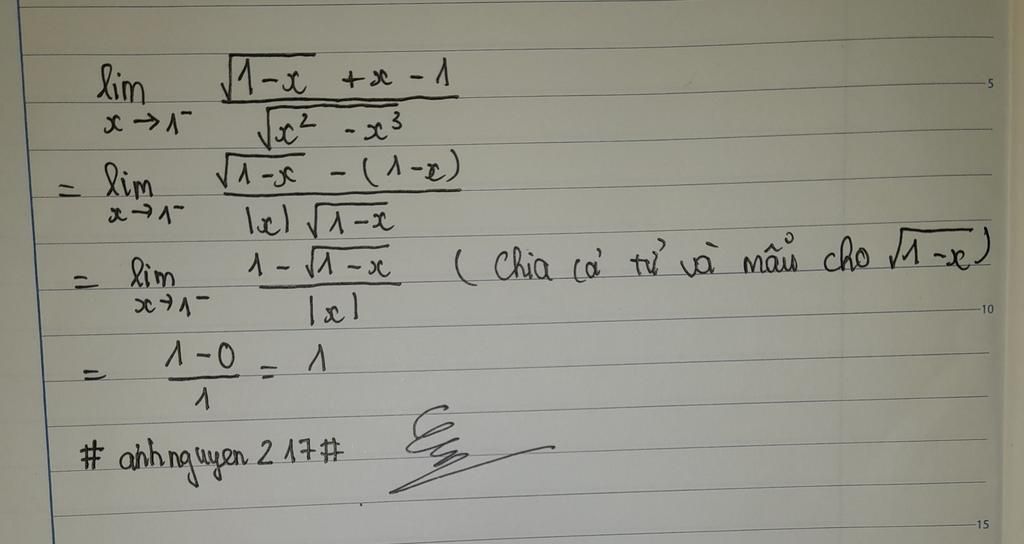 lim x→1⁻ (√(1-x) + x - 1) / √(x² - x³) 5
= lim x→1⁻ (√(1-x) - (1-x)) / (|x| √(1-x))
= lim x→1⁻ (1 - √(1-x)) / |x| ( Chia cả tử và mẫu cho √(1-x) )
10
= (1-0)/1 = 1
# anhnguyen 217#
15